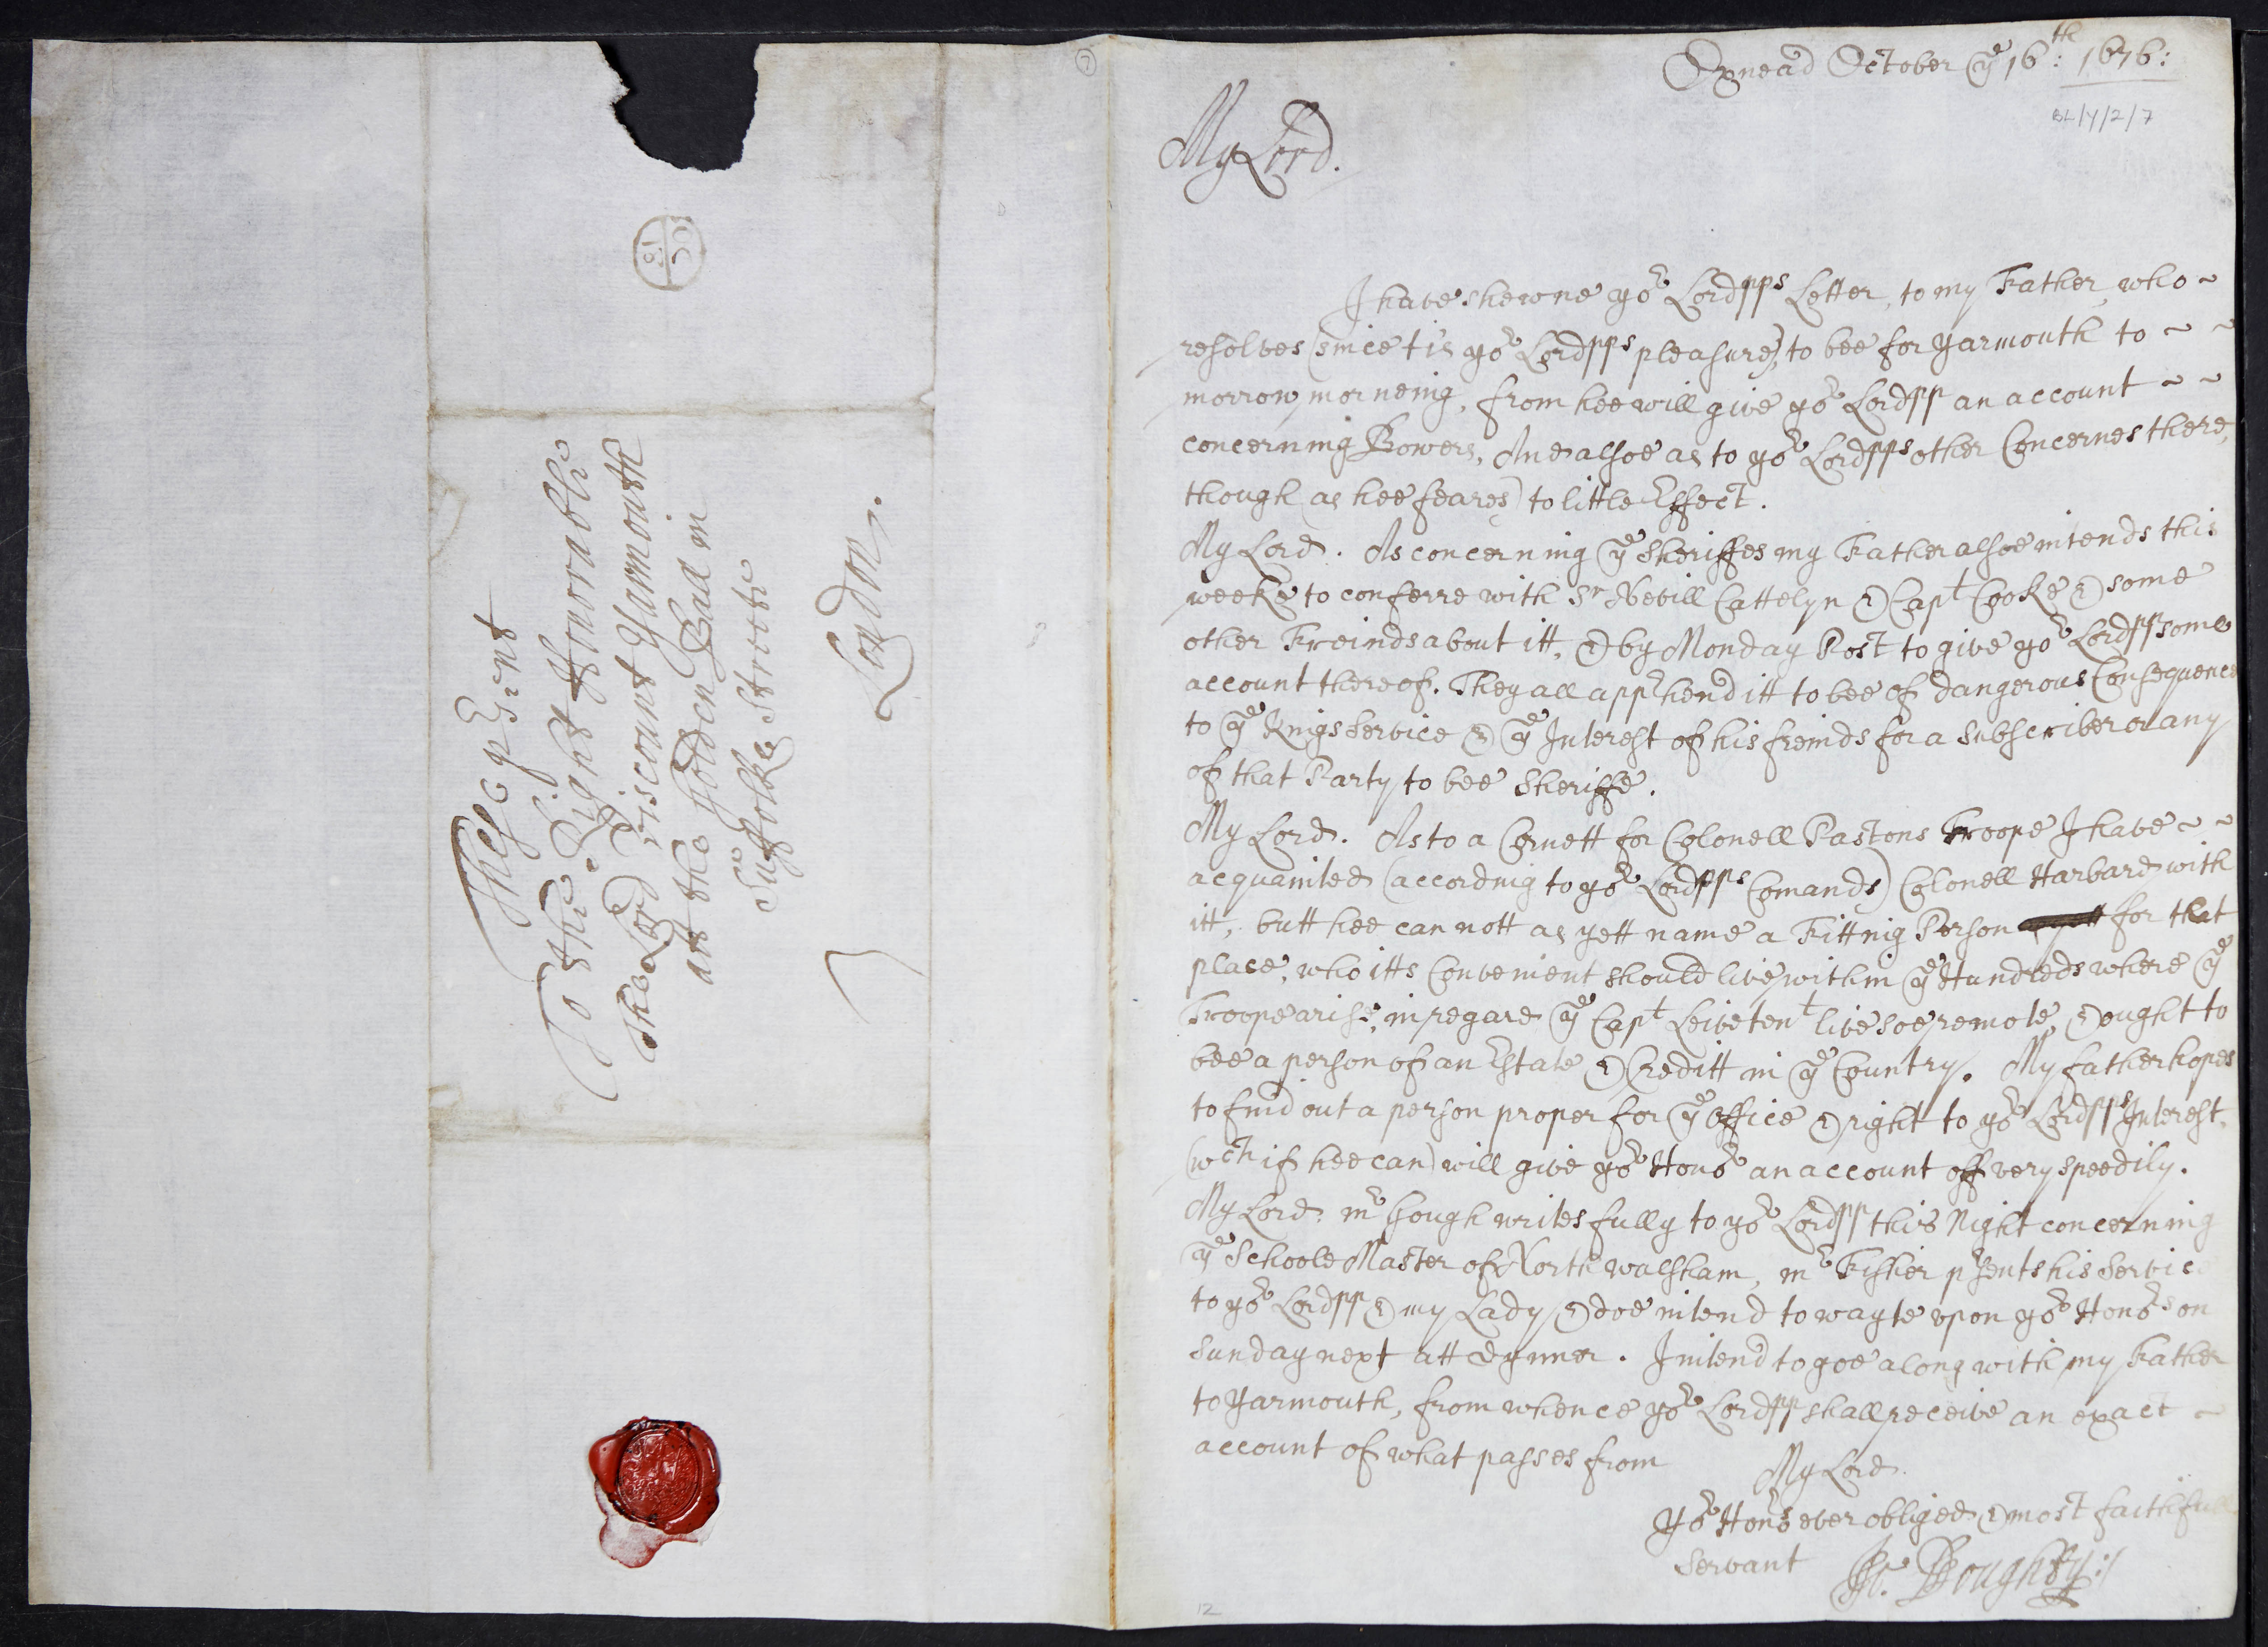 These p̱sent
To the Right Honorable
The Lord Viscount Yarmouth
att the Golden Ball in
Suffolke Streete
London.
OC
18
7
Oxnead October yᵉ 16ᵗʰ: 1676:
BL/Y/2/7
My Lord.
I have shewne yoʳ Lordpps Letter, to my Father, who ~
resolves (since tis yoʳ Lordpps pleasure), to bee for Yarmouth to ~ ~
morrow morneing, from hee will give yoʳ Lordpp an account ~ ~
concerning Bowers, And alsoe as to yoʳ Lordpps other Concernes there,
though (as hee feares) to little Effect.
My Lord. As concerning yᵉ Sheriffes my Father alsoe intends this
weeke to conferre with Sʳ Nevill Cattelyn & Capᵗ Cooke & some
other Freinds about itt, & by Monday Post to give yoʳ Lordpp some
account thereof. They all appʳhend itt to bee of dangerous Consequence
to yᵉ Kings Service & yᵉ Interest of his freinds for a Subscriber or any
of that Party to bee Sheriffe.
My Lord. As to a Cornett for Colonell Pastons Troope I have ~ ~
acquainted (according to yoʳ Lordpps Comands) Colonell Harbard with
itt, butt hee can nott as yett name a Fitting Person for that
place, who itts Convenient should live within yᵉ Hundreds where yᵉ
Troope arise, in regard yᵉ Capᵗ Leivetenᵗ live soe remote, & ought to
bee a person of an Estate & Creditt in yᵉ Country. My father hopes
to find out a person proper for yᵉ Office & right to yoʳ Lordpps Interest,
(wᶜʰ if hee can) will give yoʳ Honoʳ an account off very speedily.
My Lord. mʳ Gough writes fully to yoʳ Lordpp this Night concerning
yᵉ Schoole Master of North Walsham, mʳ Fisher pʳsents his Service
to yoʳ Lordpp & my Lady & doe intend to wayte vpon yoʳ Honoʳˢ on
Sunday next att dynner. I intend to goe along with my Father
to Yarmouth, from whence yoʳ Lordpp shall receive an exact ~
account of what passes from
My Lord.
Yoʳ Honoʳˢ ever obliged & most faithfull
Servant Doughty:/
12